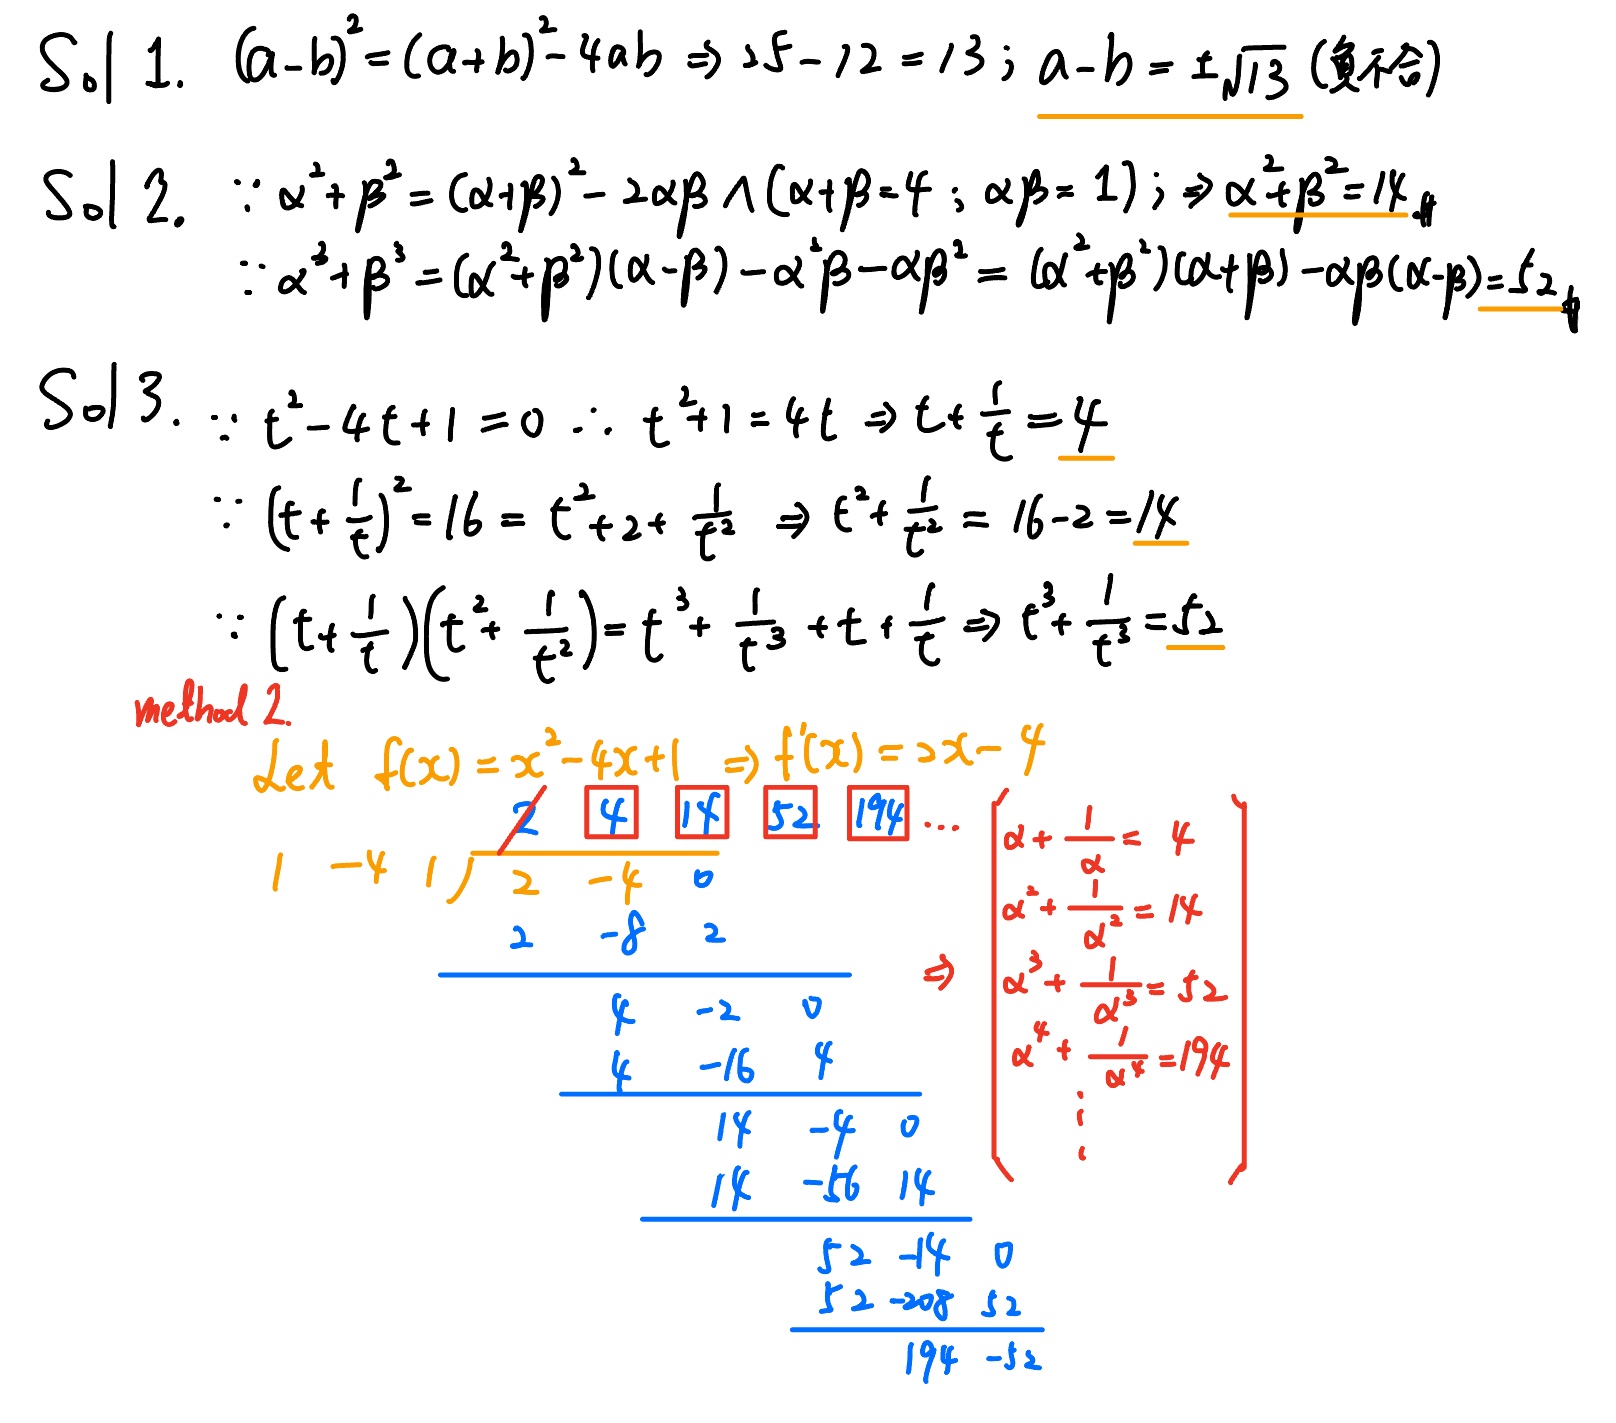 Sol 1. (a-b)² = (a+b)² - 4ab ⇒ 25 - 12 = 13 ; a - b = ±√13 (負不合)
Sol 2. ∵ α² + β² = (α+β)² - 2αβ ∧ (α+β=4 ; αβ=1) ; ⇒ α²+β²=14
∵ α³ + β³ = (α²+β²)(α-β) - α²β - αβ² = (α²+β²)(α+β) - αβ(α-β) = 52
Sol 3. ∵ t² - 4t + 1 = 0 ∴ t² + 1 = 4t ⇒ t + 1/t = 4
∵ (t + 1/t)² = 16 = t² + 2 + 1/t² ⇒ t² + 1/t² = 16 - 2 = 14
∵ (t + 1/t)(t² + 1/t²) = t³ + 1/t³ + t + 1/t ⇒ t³ + 1/t³ = 52
method 2.
Let f(x) = x² - 4x + 1 ⇒ f'(x) = 2x - 4
2 4 14 52 194 ...
1 -4 1 ) 2 -4 0
2 -8 2
4 -2 0
4 -16 4
14 -4 0
14 -56 14
52 -14 0
52 -208 52
194 -52
⇒
α + 1/α = 4
α² + 1/α² = 14
α³ + 1/α³ = 52
α⁴ + 1/α⁴ = 194
⋮